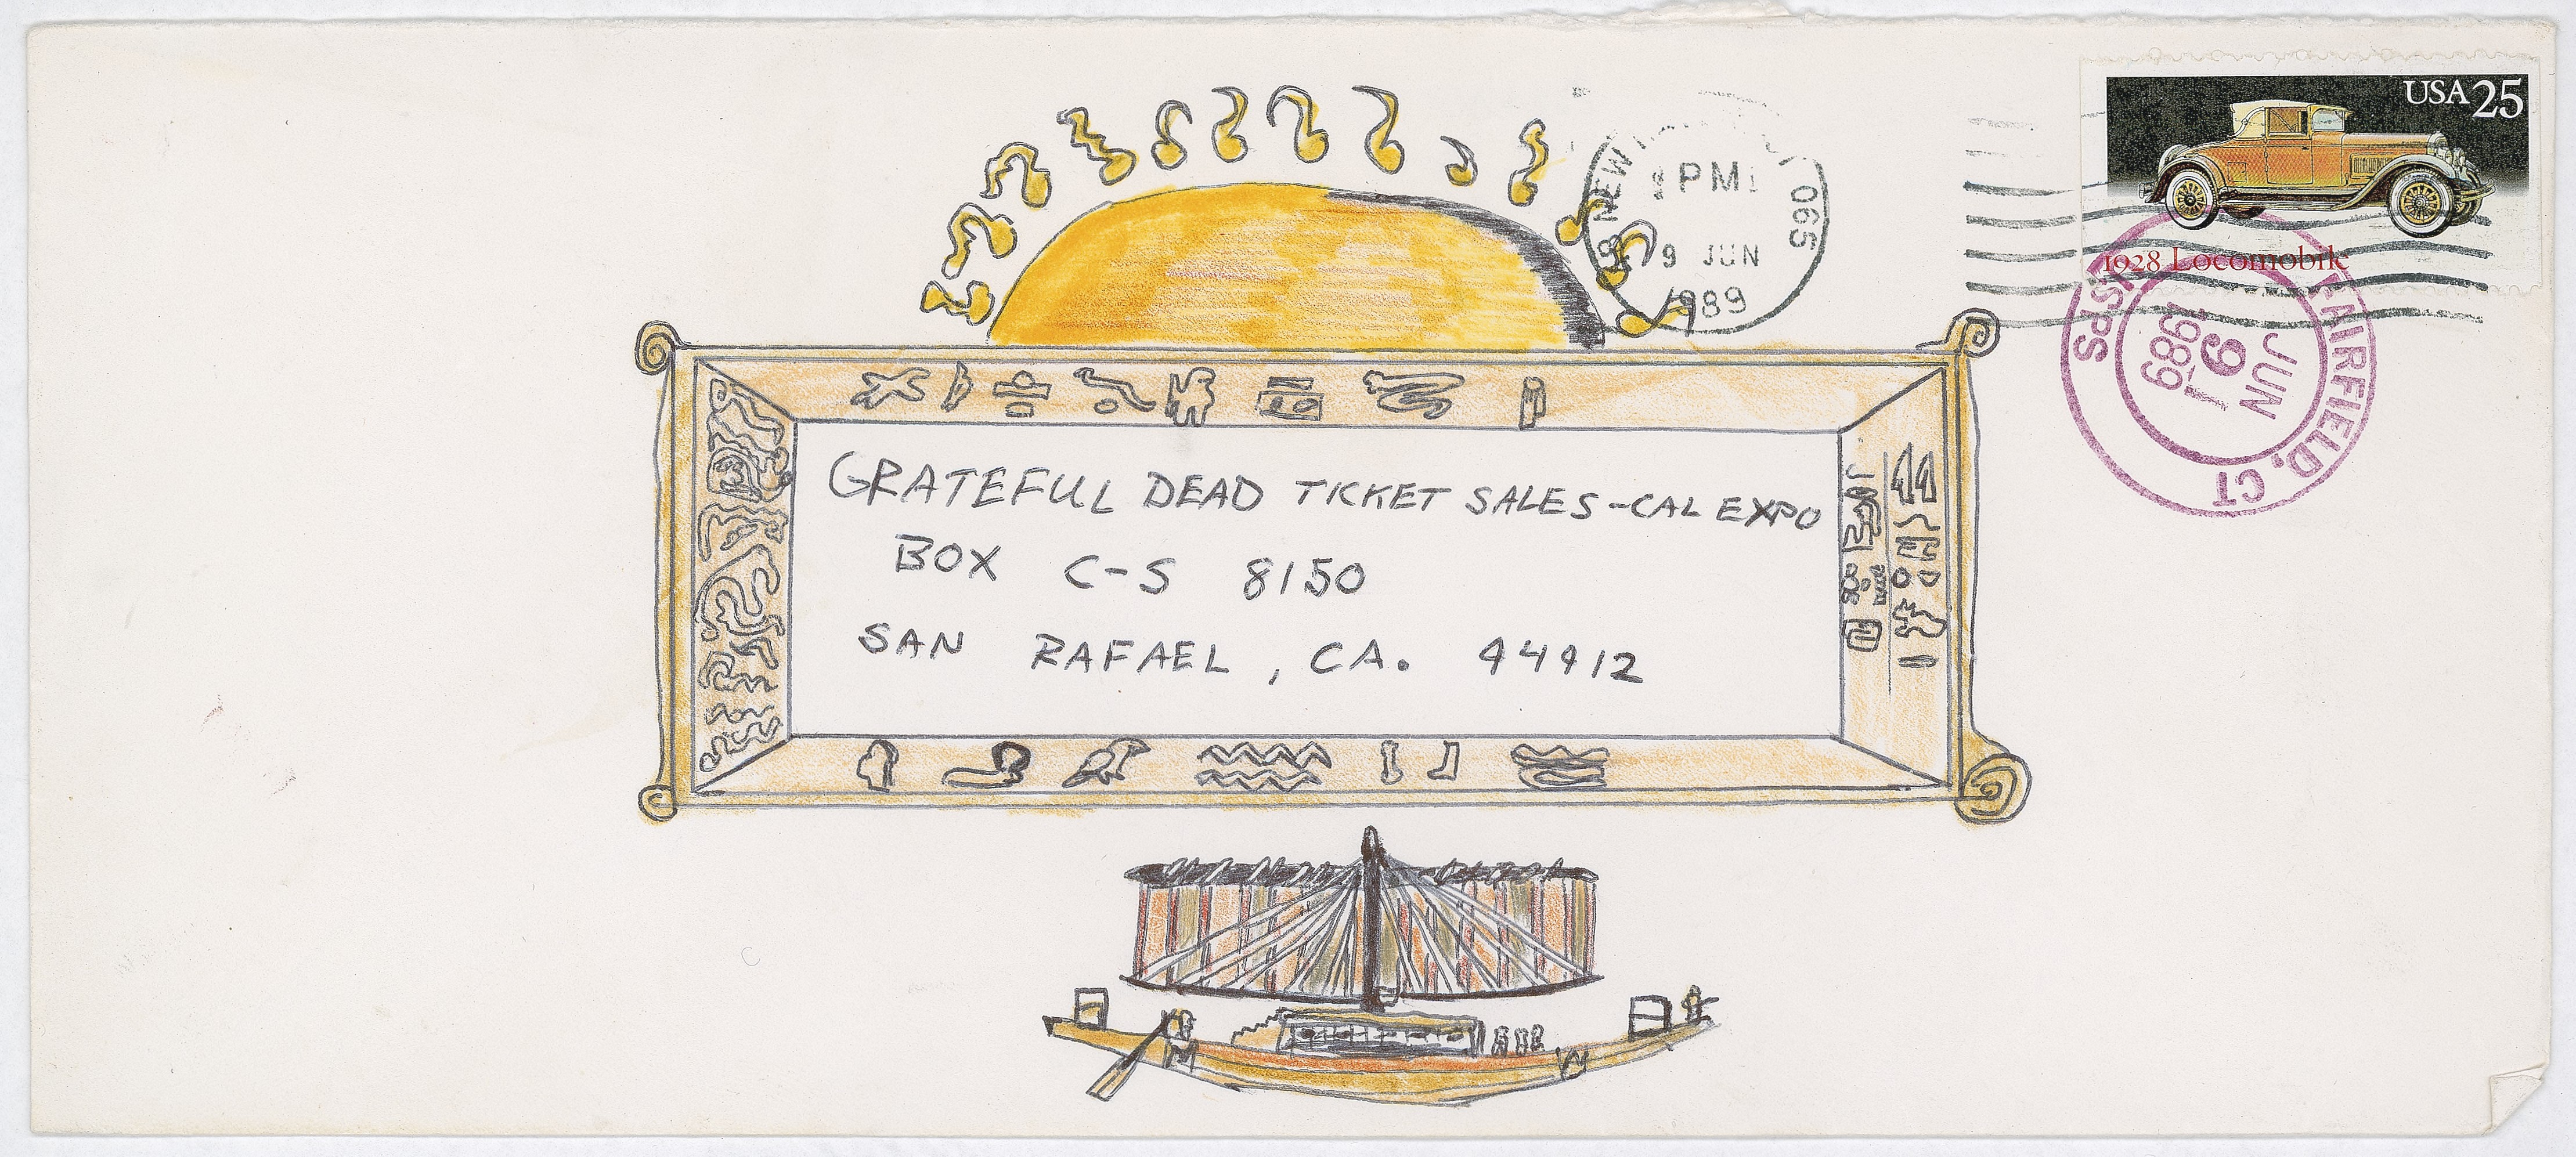 USA 25
1928 Locomobile
NEW
PM
9 JUN
1989
065
USPS
FAIRFIELD, CT
JUN
9
1989
GRATEFUL DEAD TICKET SALES-CAL EXPO
BOX C-S 8150
SAN RAFAEL, CA. 94912